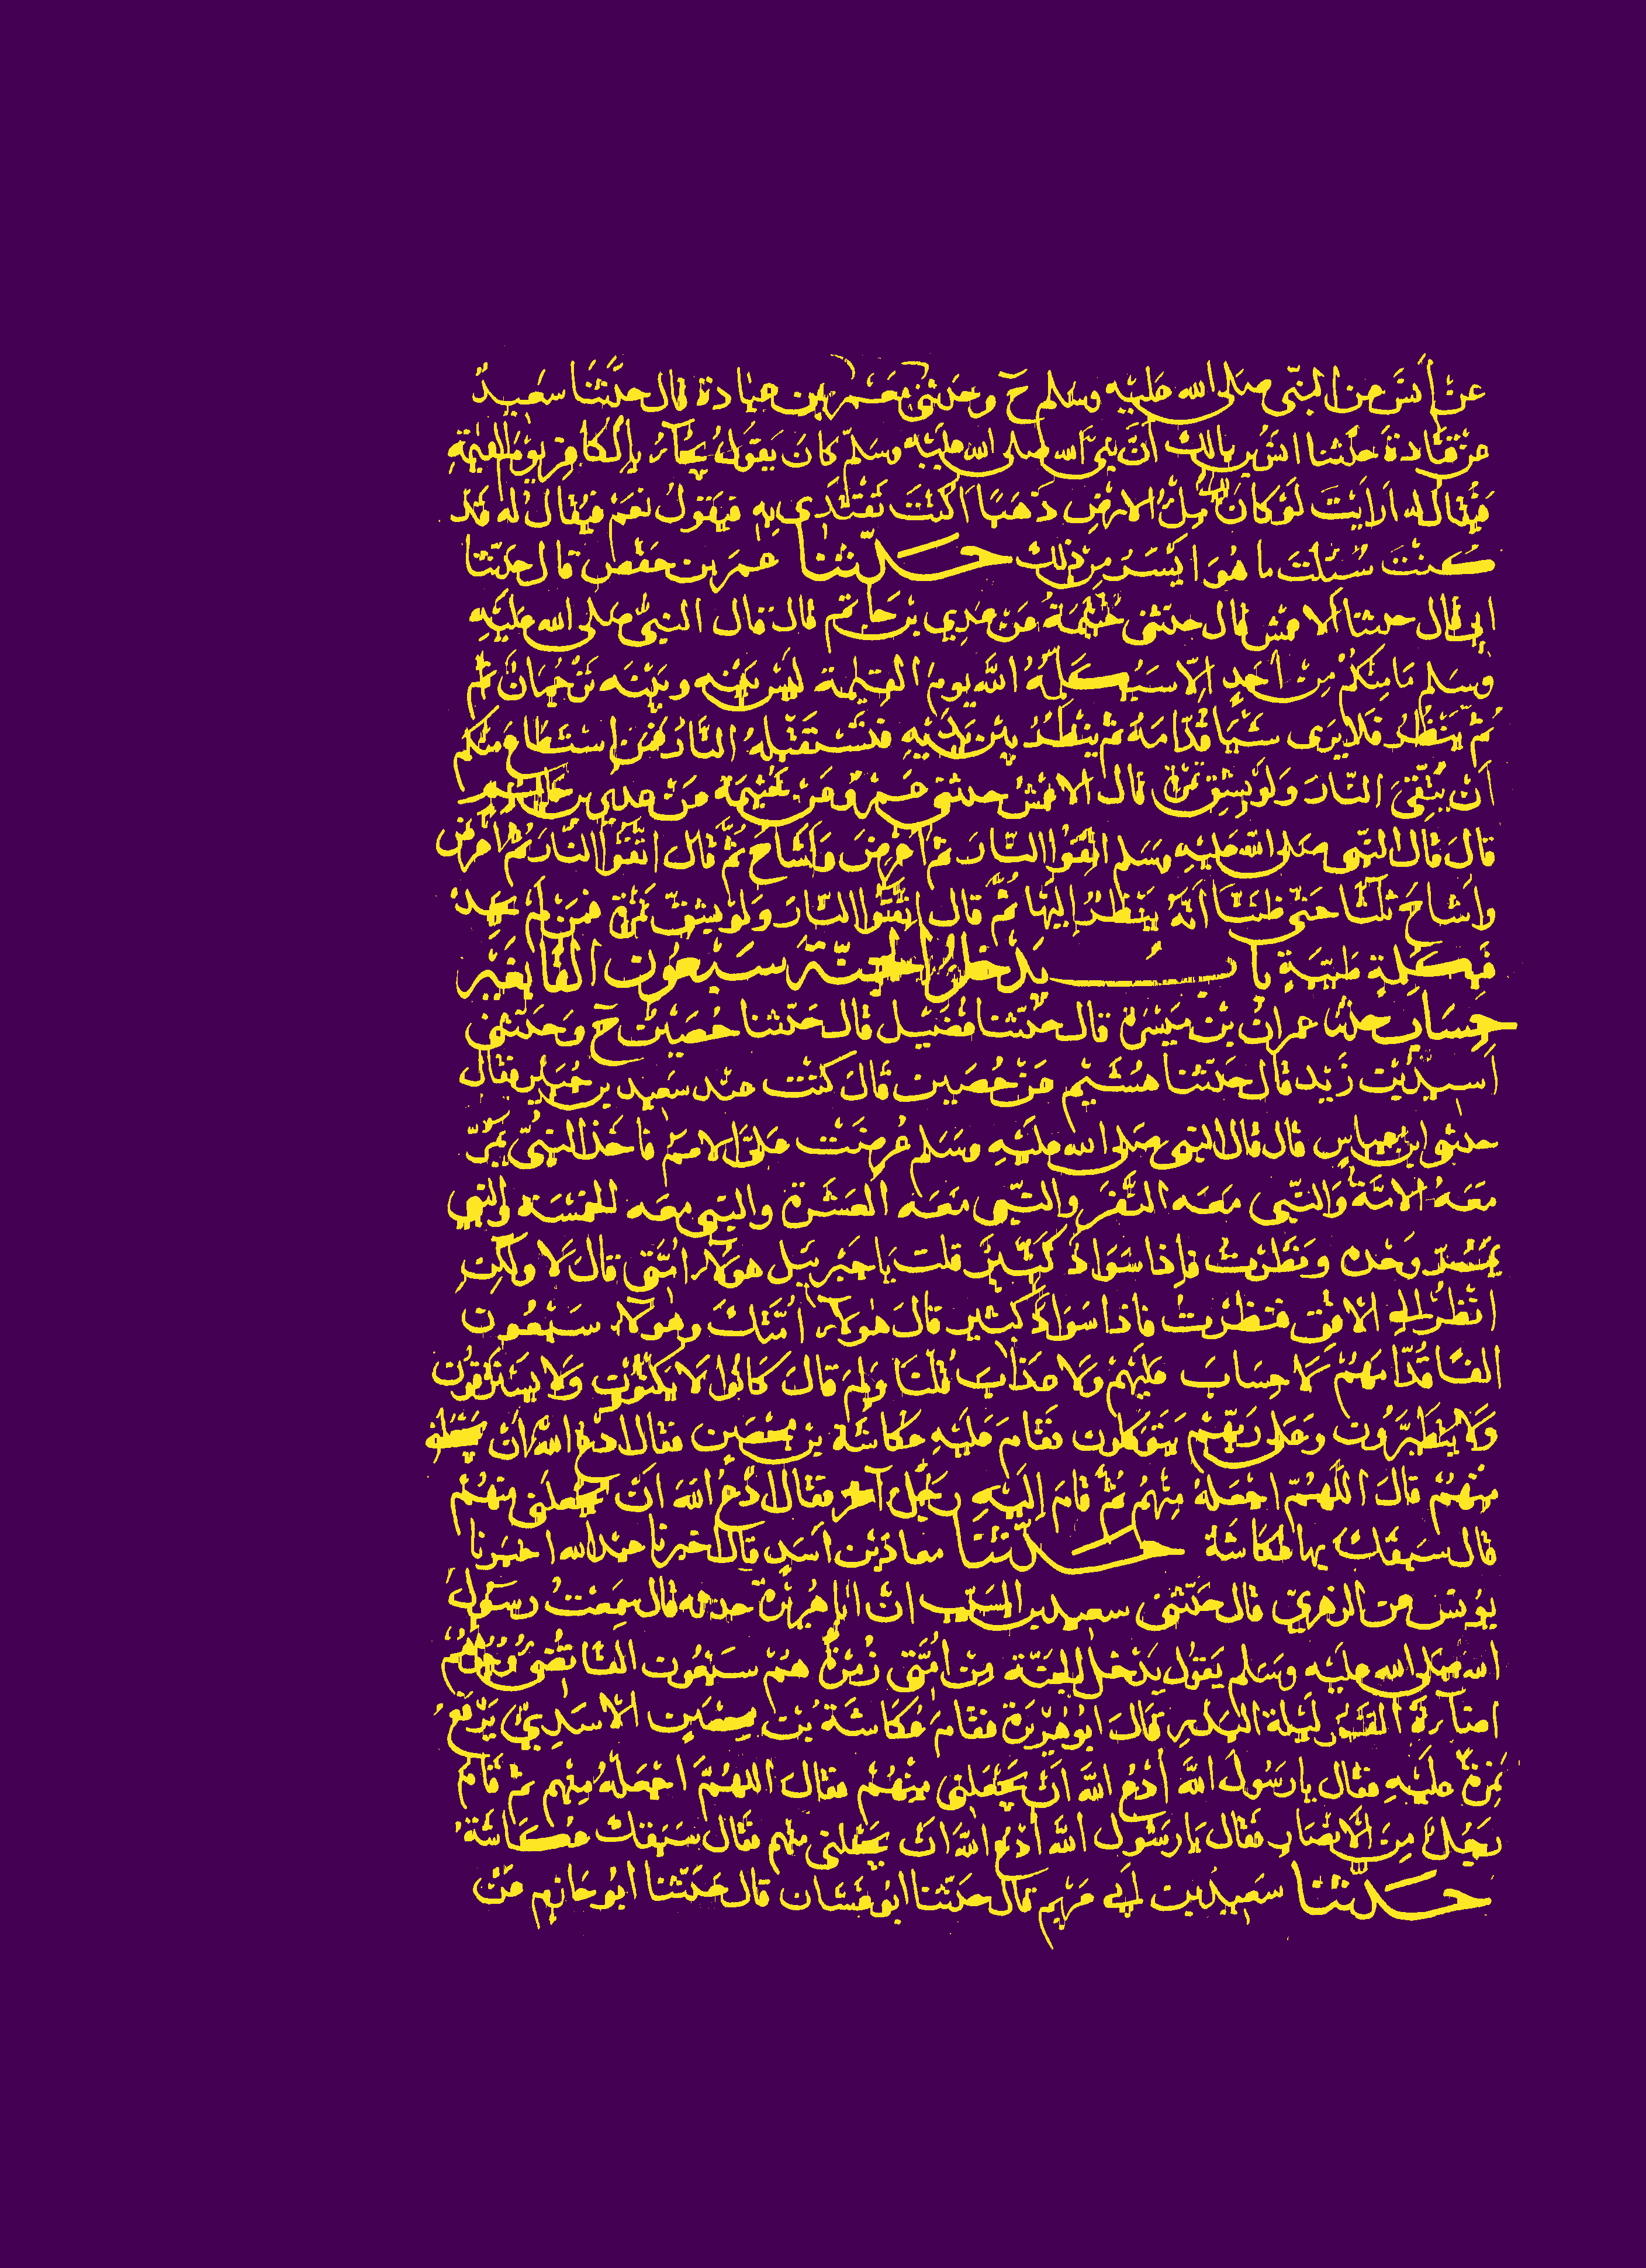 عن أنس عن النبي صلى الله عليه وسلم ح وحدثني معمر بن عبادة قال حدثنا سعيد
عن قتادة حدثنا انس بن مالك أن نبي الله صلى الله عليه وسلم كان يقول يجآء بالكافر يوم القيمة
فيقال له ارايت لو كان لك مِلْءُ الارض ذهبا اكنت تفتدي به فيقول نعم فيقال له قد
كنت سئلت ما هو ايسر من ذلك حدثنا عمر بن حفص قال حدثنا
ابي قال حدثنا الاعمش قال حدثني خيثمة عن عدي بن حاتم قال قال النبي صلى الله عليه
وسلم ما منكم من احد الا سيكلمه الله يوم القيمة ليس بينه وبينه ترجمان ثم
ثم ينظر فلا يرى شيا قدامه ثم ينظر بين يديه فتستقبله النار فمن استطاع منكم
أن يتقي النار ولو بشق تمرة قال الاعمش حدثني عمرو عن خيثمة عن عدي بن حاتم
قال قال النبي صلى الله عليه وسلم اتقوا النار ثم اعرض وأشاح ثم قال اتقوا النار ثم اعرض
واشاح ثلثا حتى ظننا أنه ينظر إليها ثم قال اتقوا النار ولو بشق تمرة فمن لم يجد
فبكلمة طيبة باب يدخل الجنة سبعون الفا بغير
حساب حدثنا عمران بن ميسرة قال حدثنا فضيل قال حدثنا حصين ح وحدثني
اسيد بن زيد قال حدثنا هشيم عن حصين قال كنت عند سعيد بن جبير فقال
حدثني ابن عباس قال قال النبي صلى الله عليه وسلم عرضت علي الامم فاخذ النبي يمر
معه الامة والنبي معه النفر والنبي معه العشرة والنبي معه الخمسة والنبي
يمر وحده ونظرت فإذا سواد كثير قلت يا جبرئيل هولاء امتي قال لا ولكن
انظر الى الافق فنظرت فاذا سواد كثير قال هولآء امتك وهولآء سبعون
الفا قدامهم لا حساب عليهم ولا عذاب قلنا ولم قال كانوا لا يكتوون ولا يسترقون
ولا يتطيرون وعلى ربهم يتوكلون فقام عليه عكاشة بن محصن فقال ادع الله ان يجعلني
منهم قال اللهم اجعله منهم ثم قام إليه رجل آخر فقال ادع الله ان يجعلني منهم
قال سبقك بها عكاشة حدثنا معاذ بن اسد قال اخبرنا عبد الله اخبرنا
يونس عن الزهري قال حدثني سعيد بن المسيب ان ابا هريرة حدثه قال سمعت رسول
الله صلى الله عليه وسلم يقول يدخل الجنة من امتي زمرة هم سبعون الفا تضيء وجوههم
اضآءة القمر ليلة البدر قال ابو هريرة فقام عكاشة بن محصن الاسدي يرفع
نمرة عليه فقال يا رسول الله أدع الله ان يجعلني منهم فقال اللهم اجعله منهم ثم قام
رجل من الانصار فقال يا رسول الله أدع الله ان يجعلني منهم فقال سبقك عكاشة
حدثنا سعيد بن أبي مريم قال حدثنا ابو غسان قال حدثنا ابو حازم عن